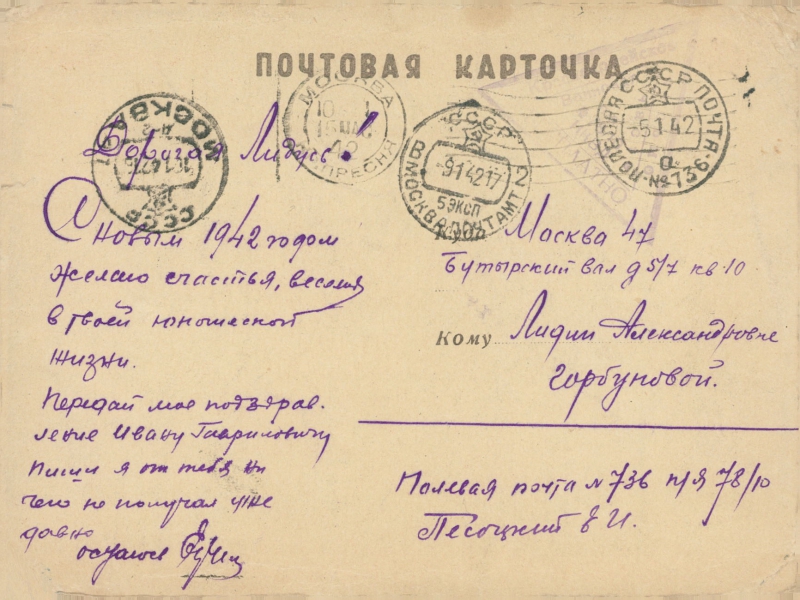 ПОЧТОВАЯ КАРТОЧКА
Дорогая Лидусь!
С новым 1942 годом
желаю счастья, веселия
в твоей юношеской
жизни.
Передай мое поздрав.
ление Ивану Гавриловичу
пиши я от тебя ни
чего не получал уже
давно
остаюсь
Куда Москва 47
Бутырский вал д 5/7 кв 10
Кому Лидии Александровне
Горбуновой.
Полевая почта N 736 п/я 78/10
Песоцкий Е И.
МОСКВА
СССР
МОСКВА
10 1
42
КР. ПРЕСНЯ
СССР
-914217
5 ЭКСП
В МОСКВА ПОЧТАМТ 2
СССР
ПОЛЕВАЯ ПОЧТА №736
-5.1.42
а